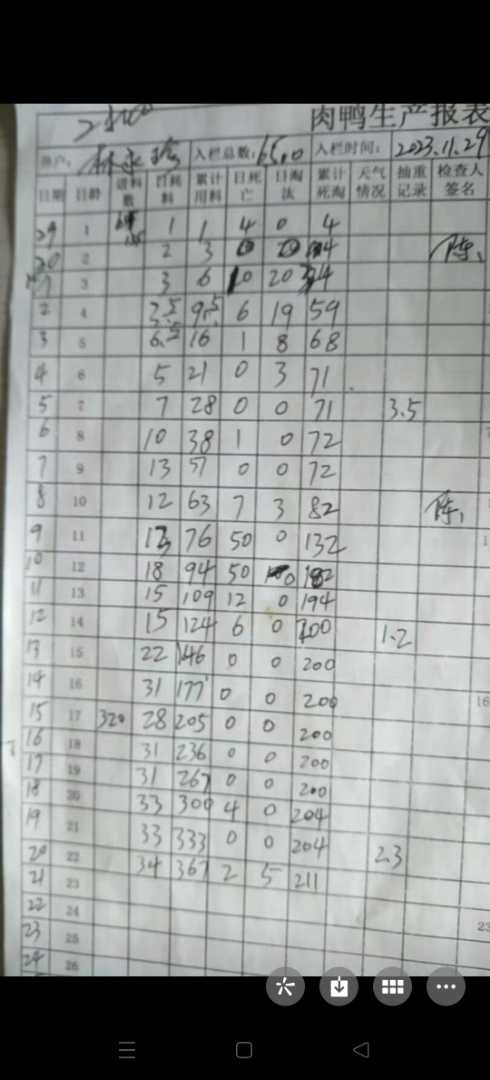 肉鸭生产报表
养户： 入栏总数：6500 入栏时间：2023.11.29
日期 日龄 进料数 日耗料 累计用料 日死亡 日淘汰 累计死淘 天气情况 抽重记录 检查人签名
29 1 1 1 4 0 4
2 2 3 4 陈
3 3 6 10 20 34
2 4 3.5 9.5 6 19 59
3 5 6.5 16 1 8 68
4 6 5 21 0 3 71
5 7 7 28 0 0 71 3.5
6 8 10 38 1 0 72
7 9 13 51 0 0 72
8 10 12 63 7 3 82 陈
9 11 13 76 50 0 132
10 12 18 94 50 0 182
11 13 15 109 12 0 194
12 14 15 124 6 0 200 1.2
13 15 22 146 0 0 200
14 16 31 177 0 0 200 16
15 17 320 28 205 0 0 200
16 18 31 236 0 0 200
17 19 31 267 0 0 200
18 20 33 300 4 0 204
19 21 33 333 0 0 204 2.3
20 22 34 367 2 5 211
21 23
22 24
23 25 23
24 26